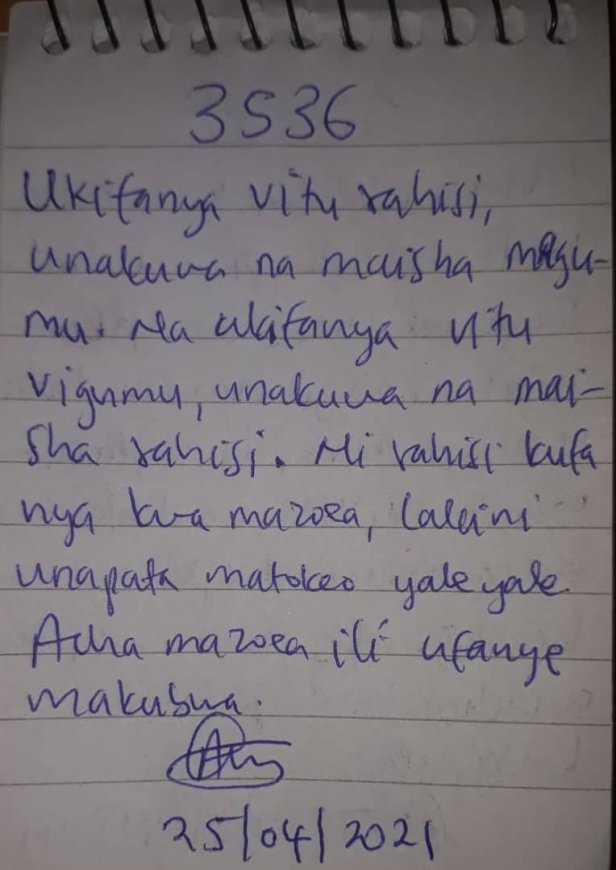 3536
Ukifanya vitu rahisi,
unakuwa na maisha magu-
mu. Na ukifanya vitu
vigumu, unakuwa na mai-
sha rahisi. Ni rahisi kufa
nya kwa mazoea, lakini
unapata matokeo yale yale.
Acha mazoea ili ufanye
makubwa.
25/04/2021